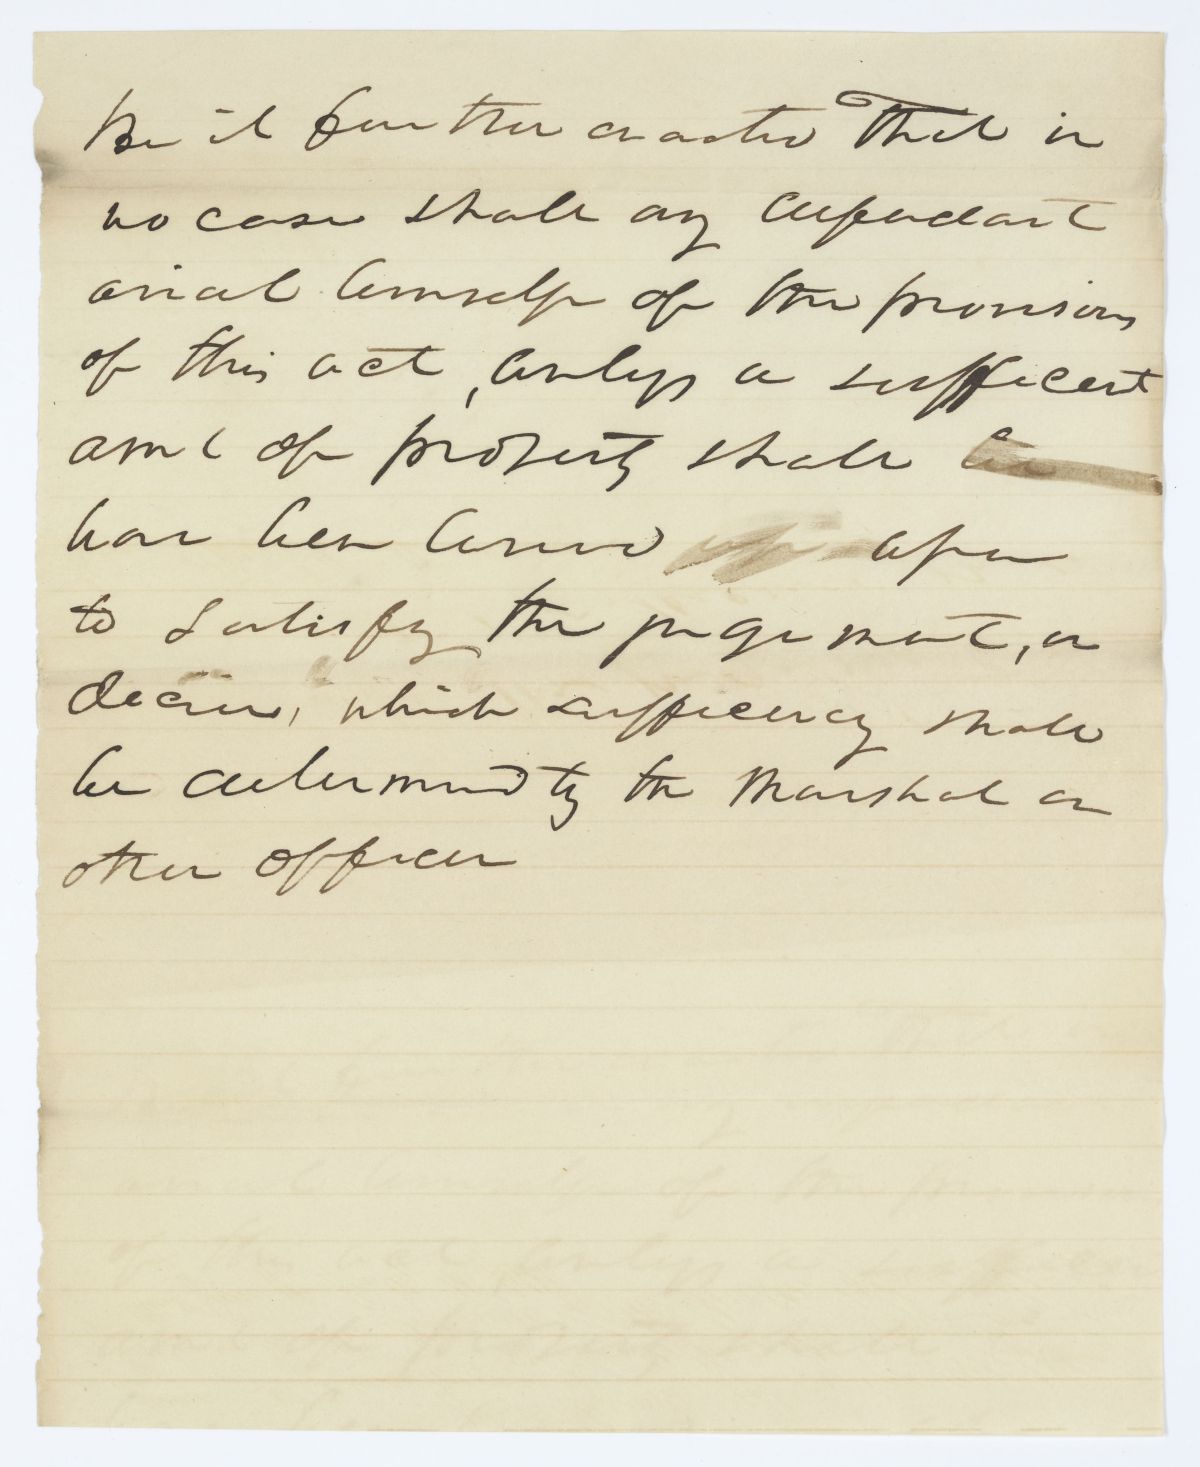 Be it further enacted That in
no case shall any defendant
avail himself of the provisions
of this act, unless a sufficent
amt of property shall be
have been levied up upon
to satisfy the judgement, or
decree, which sufficiency shall
be determined by the Marshal or
other officer